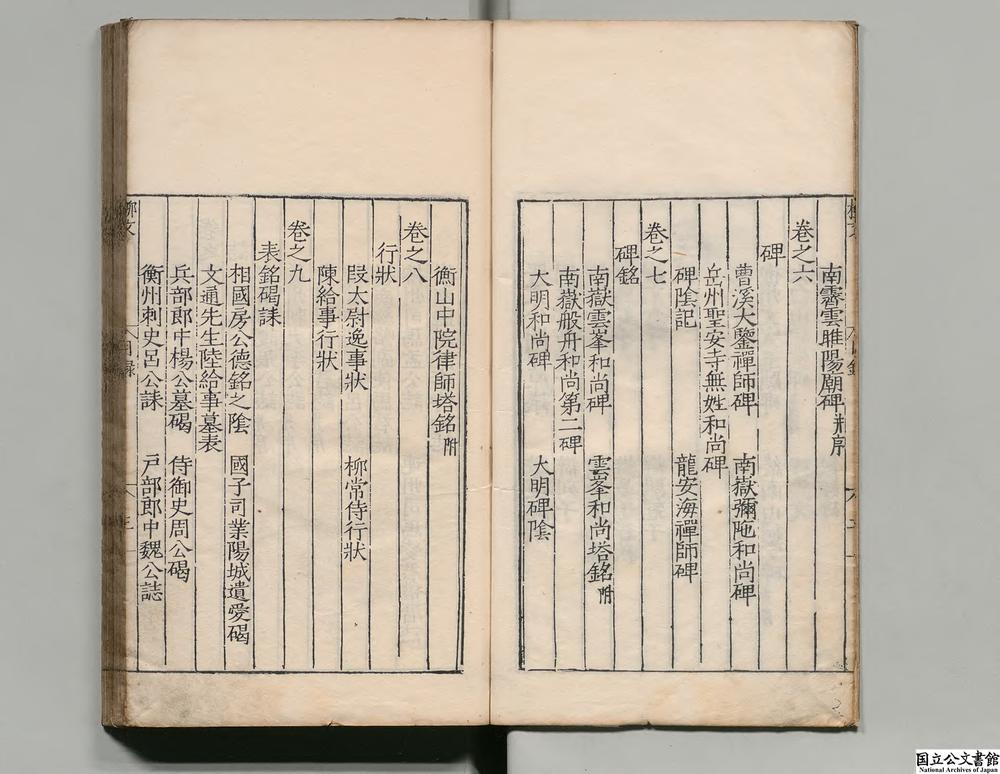 南霽雲睢陽廟碑并序
卷之六
碑
曹溪大鑒禪師碑 南嶽彌陁和尚碑
岳州聖安寺無姓和尚碑
碑陰記 龍安海禪師碑
卷之七
碑銘
南嶽雲峯和尚碑 雲峯和尚塔銘附
南嶽般舟和尚第二碑
大明和尚碑 大明碑陰
衡山中院律師塔銘附
卷之八
行狀
段太尉逸事狀 柳常侍行狀
陳給事行狀
卷之九
表銘碣誄
相國房公德銘之陰 國子司業陽城遺愛碣
文通先生陸給事墓表
兵部郎中楊公墓碣 侍御史周公碣
衡州刺史呂公誄 戶部郎中魏公誌
柳文
目錄
国立公文書館
National Archives of Japan